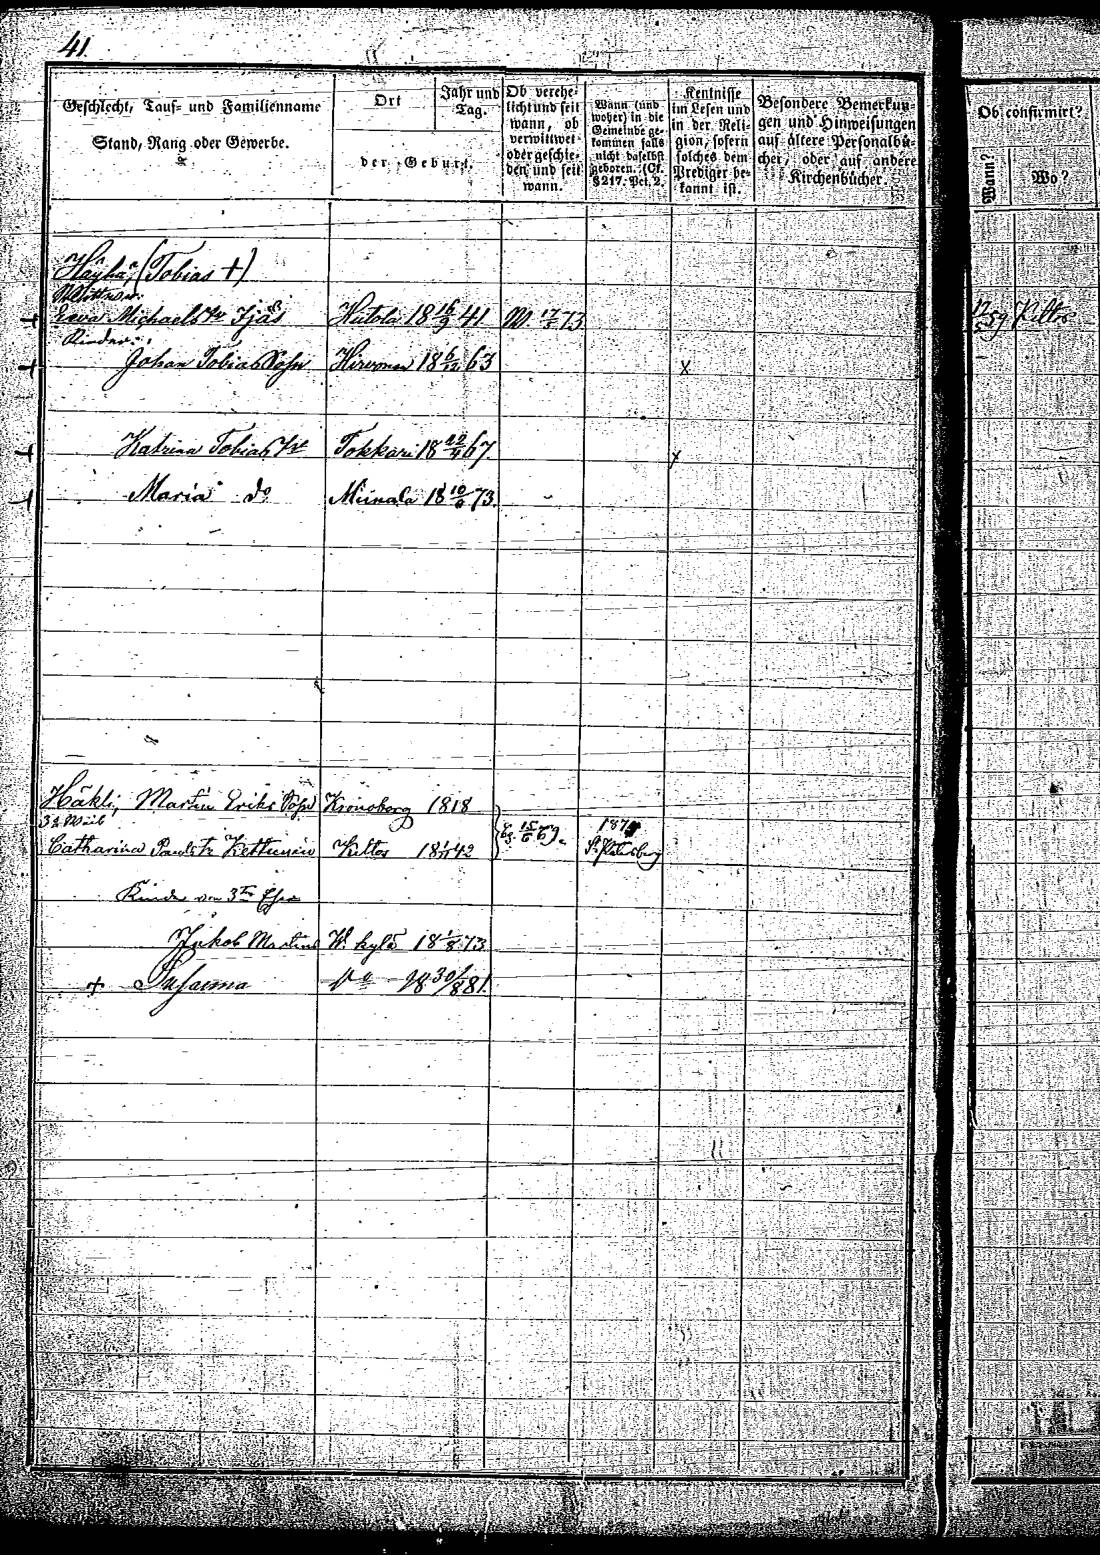 41.
Geschlecht, Tauf- und Familienname
Stand, Rang oder Gewerbe.
Ort
Jahr und Tag.
der Geburt.
Ob verehelicht und seit wann, ob verwittwet oder geschieden und seit wann.
Wann (und woher) in die Gemeinde gekommen falls nicht daselbst geboren. (Cf. § 217. Pct. 2.
Kentnisse im Lesen und in der Religion, sofern solches dem Prediger bekannt ist.
Besondere Bemerkungen und Hinweisungen auf ältere Personalbücher, oder auf andere Kirchenbücher.
Ob confirmirt?
Wann?
Wo?
Häyhä, (Tobias †)
Wittwe
Ewa Michaels Tr Hiitola 18 16/9 41. W. 17/2 73 Kiltos
Kinder:
Johan Tobias Sohn Hirvonen 18 6/12 63 x
Katrina Tobias Tr Tokkari 18 67 x
Maria do Miinala 18 73.
Häkli, Martin Eriks Sohn Kronoborg 1818
3t Weib
Catharina Pauls Tr Kettunen Kiltos 18 42 15/6 69. St. Petersburg
Kinder von 3ter Ehe
Jakob Martins W. kylä 18 1/8 73
+ Susanna 18 30/8 81.